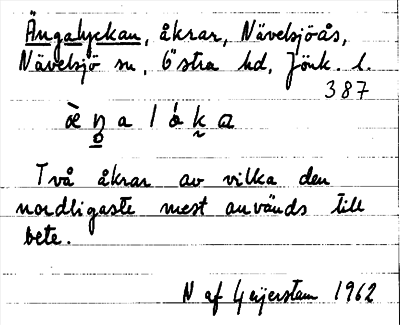 Ängalyckan, åkrar, Nävelsjöås,
Nävelsjö sn, Östra hd, Jönk. l.
387
Två åkrar av vilka den
nordligaste mest används till
bete.
N af Geijerstam 1962